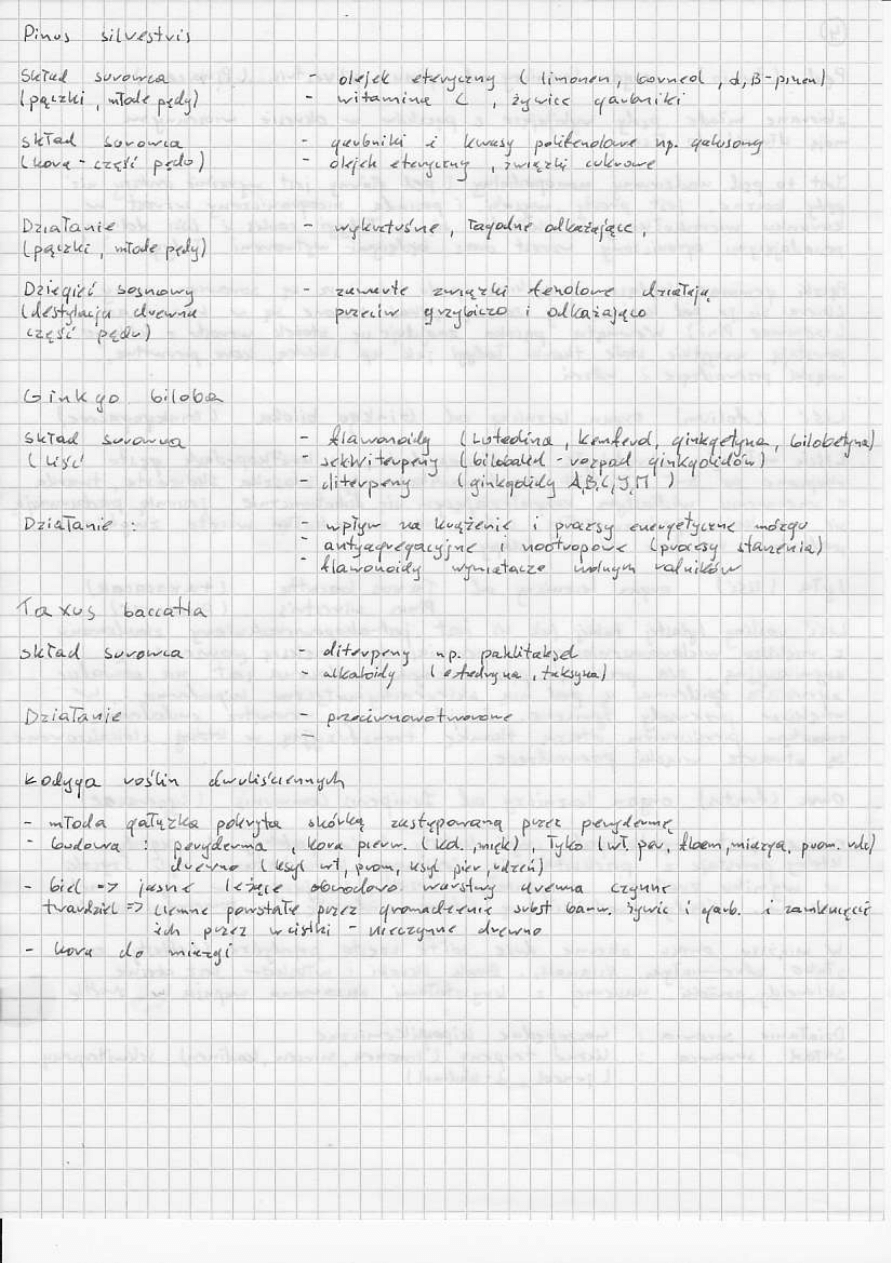 Pinus silvestris
Skład surowca - olejek eteryczny ( limonen, borneol, α,B-pinen)
(pączki, młode pędy) - witamina C, żywice garbniki
Skład surowca - garbniki i kwasy polifenolowe np. galusowy
(kora - część pędo) - olejek eteryczny, związki cukrowe
Działanie - wykrztuśne, łagodne odkażające,
(pączki, młode pędy)
Dziegieć sosnowy - zawarte związki fenolowe działają
(destylacja drewna przeciw grzybiczo i odkażająco
część pędu)
Ginkgo biloba
Skład surowca - flawonoidy (Luteolina, kemferol, ginkgetyna, bilobetyna)
(liść - sekwiterpeny (bilobalid - rozpad ginkgolidów)
- diterpeny (ginkgolidy A,B,C,J,M )
Działanie : - wpływ na krążenie i procesy energetyczne mózgu
- antyagregacyjne i nootropowe (procesy starzenia)
- flawonoidy wymiatacze wolnym rodników
Taxus baccatta
skład surowca - diterpeny np. paklitaksel
- alkaloidy (efedryna, taksyna)
Działanie - przeciwnowotworowe
-
Łodyga roślin dwuliściennych
- młoda gałązka pokryta skórką zastępowaną przez perydermę
- budowa : peryderma, kora pierw. (kol., mięk), łyko (wł, par, floem, miazga, prom. rdz)
drewno (ksyl wt, prom, ksyl pier, rdzeń)
- biel => jasne leżące obwodowo warstwy drewna czynne
twardziel => ciemne powstałe przez gromadzenie subst barw. żywic i garb. i zamknięcie
ich przez wcistki - nieczynne drewno
- kora do miazgi